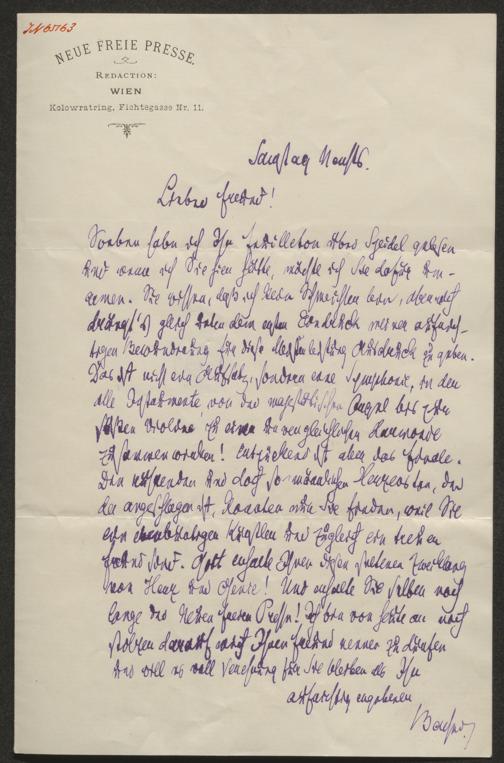 IN 65763
NEUE FREIE PRESSE.
REDACTION:
WIEN
Kolowratring, Fichtegasse Nr. 11.
Samstag Nachts.
Lieber Freund!
Soeben habe ich Ihr Feuilleton über Speidel gelesen
und wenn ich Sie hier hätte, möchte ich Sie dafür um-
armen. Sie wissen, daß ich kein Schmeichler bin, aber mich
drängt's gleich unter dem ersten Eindruck meiner aufrich-
tigen Bewunderung für diese Meisterleistung Ausdruck zu geben.
Das ist nicht ein Aufsatz, sondern eine Symphonie, in der
alle Instrumente, von der majestätischen Orgel bis zur
süßen Violine zu einer unvergleichlichen Harmonie
zusammenwirken! Entzückend ist aber das Finale.
Den rührenden und doch so männlichen Herzenston, der
da angeschlagen ist, konnten nur Sie finden, weil Sie
ein Künstler und zugleich ein treuer
Freund sind. Gott erhalte Ihnen diesen seltenen Zweiklang
von Herz und Genie! Und erhalte Sie selber noch
lange der Neuen Freien Presse! Ich bin von heute an noch
stolzer darauf mich Ihren Freund nennen zu dürfen
und will es voll Verehrung für Sie bleiben als Ihr
aufrichtig ergebener